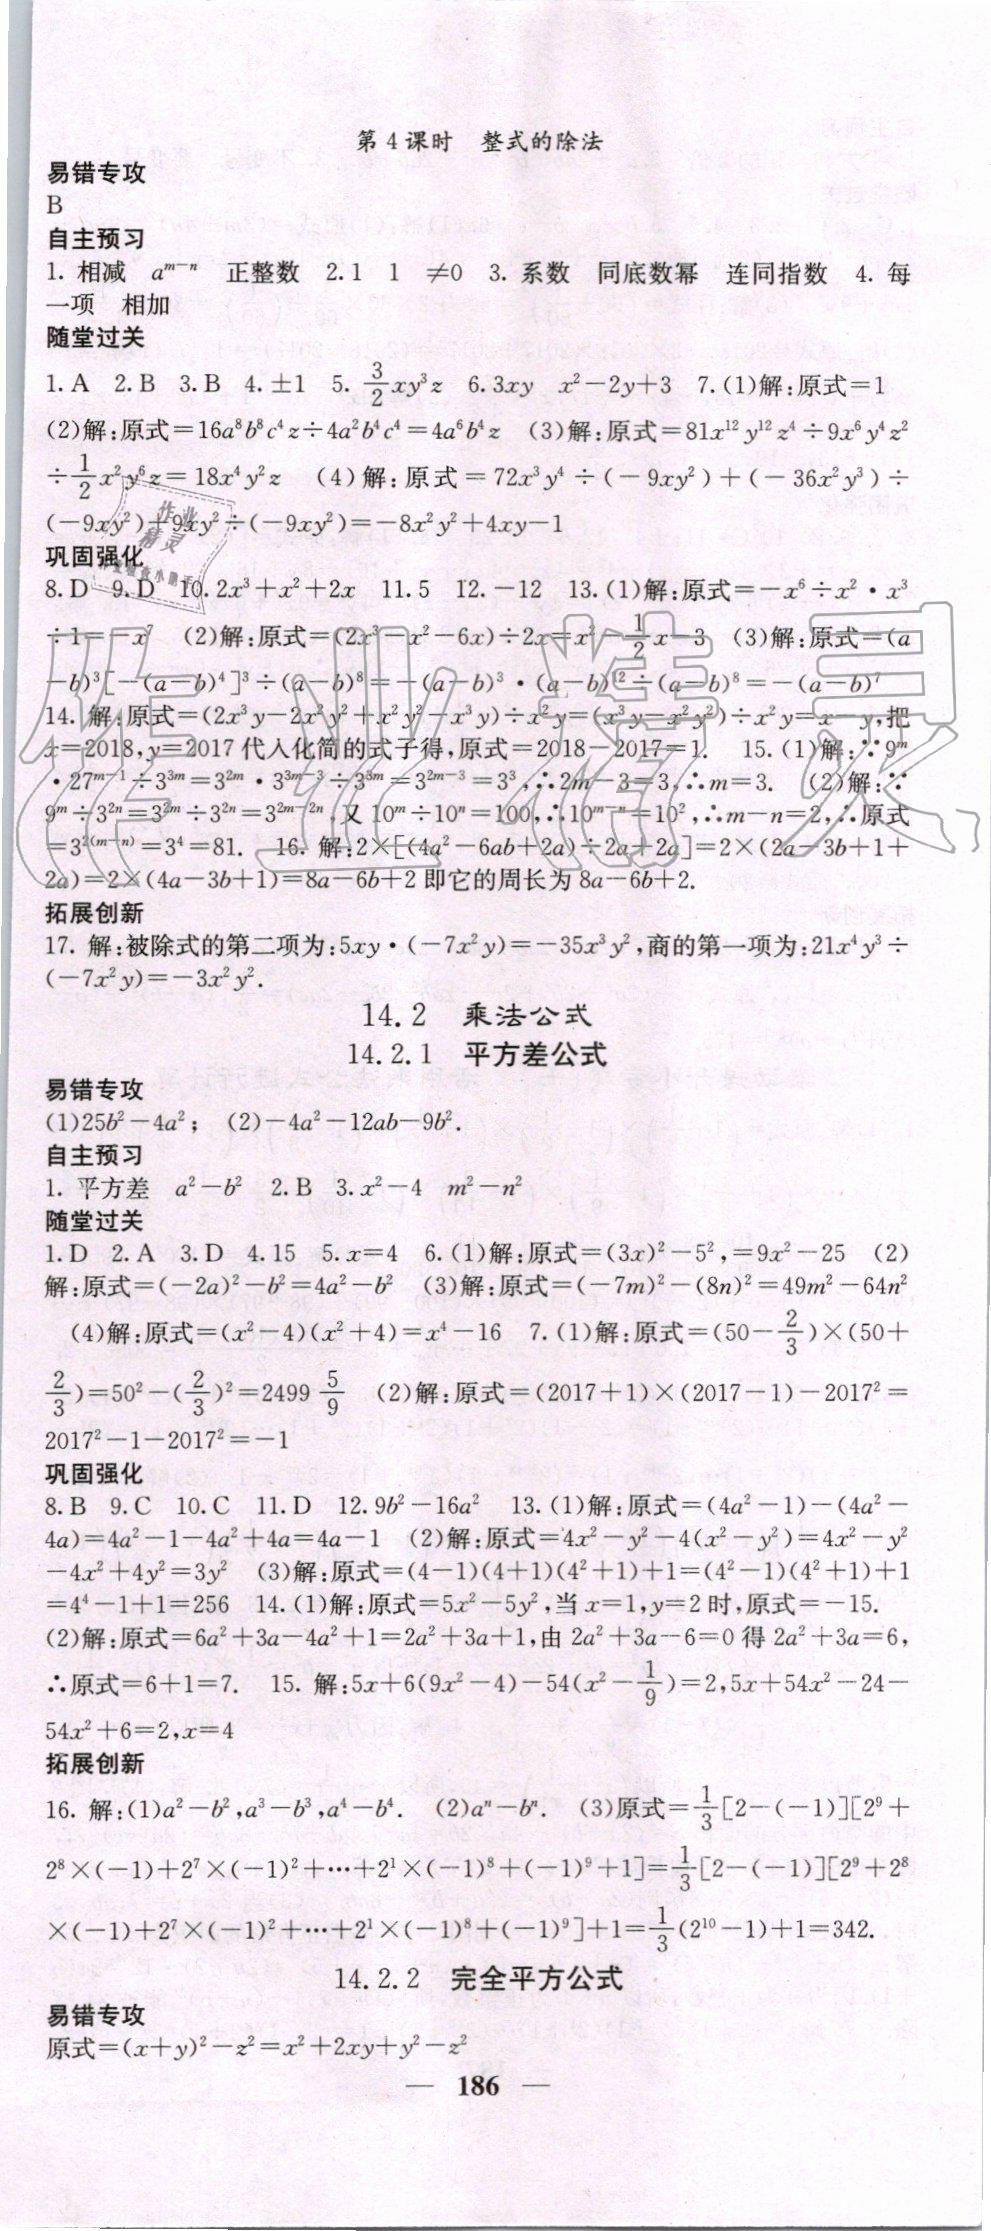 第4课时 整式的除法
易错专攻
B
自主预习
1. 相减 a^{m-n} 正整数 2.1 1 ≠0 3. 系数 同底数幂 连同指数 4. 每
一项 相加
随堂过关
1.A 2.B 3.B 4.±1 5. \frac{3}{2}xy³z 6.3xy x²-2y+3 7.(1)解:原式=1
(2)解:原式=16a⁸b⁸c⁴z÷4a²b⁴c⁴=4a⁶b⁴z (3)解:原式=81x¹²y¹²z⁴÷9x⁶y⁴z²
÷\frac{1}{2}x²y⁶z=18x⁴y²z (4)解:原式=72x³y⁴÷(-9xy²)+(-36x²y³)÷
(-9xy²)+9xy²÷(-9xy²)=-8x²y²+4xy-1
巩固强化
8.D 9.D 10.2x³+x²+2x 11.5 12.-12 13.(1)解:原式=-x⁶÷x²·x³
÷1=-x⁷ (2)解:原式=(2x³-x²-6x)÷2x=x²-\frac{1}{2}x-3 (3)解:原式=(a
-b)³[-(a-b)⁴]³÷(a-b)⁸=-(a-b)³·(a-b)¹²÷(a-b)⁸=-(a-b)⁷
14. 解:原式=(2x³y-2x²y²+x²y²-x³y)÷x²y=(x³y-x²y²)÷x²y=x-y,把
x=2018,y=2017代入化简的式子得,原式=2018-2017=1. 15.(1)解:∵9^m
·27^{m-1}÷3^{3m}=3^{2m}·3^{3m-3}÷3^{3m}=3^{2m-3}=3³,∴2m-3=3,∴m=3. (2)解:∵
9^m÷3^{2n}=3^{2m}÷3^{2n}=3^{2m-2n},又10^m÷10^n=100,∴10^{m-n}=10²,∴m-n=2,∴原式
=3^{2(m-n)}=3⁴=81. 16. 解:2×[(4a²-6ab+2a)÷2a+2a]=2×(2a-3b+1+
2a)=2×(4a-3b+1)=8a-6b+2即它的周长为8a-6b+2.
拓展创新
17. 解:被除式的第二项为:5xy·(-7x²y)=-35x³y²,商的第一项为:21x⁴y³÷
(-7x²y)=-3x²y².
14.2 乘法公式
14.2.1 平方差公式
易错专攻
(1)25b²-4a²; (2)-4a²-12ab-9b².
自主预习
1. 平方差 a²-b² 2.B 3.x²-4 m²-n²
随堂过关
1.D 2.A 3.D 4.15 5.x=4 6.(1)解:原式=(3x)²-5²,=9x²-25 (2)
解:原式=(-2a)²-b²=4a²-b² (3)解:原式=(-7m)²-(8n)²=49m²-64n²
(4)解:原式=(x²-4)(x²+4)=x⁴-16 7.(1)解:原式=(50-\frac{2}{3})×(50+
\frac{2}{3})=50²-(\frac{2}{3})²=2499\frac{5}{9} (2)解:原式=(2017+1)×(2017-1)-2017²=
2017²-1-2017²=-1
巩固强化
8.B 9.C 10.C 11.D 12.9b²-16a² 13.(1)解:原式=(4a²-1)-(4a²-
4a)=4a²-1-4a²+4a=4a-1 (2)解:原式=4x²-y²-4(x²-y²)=4x²-y²
-4x²+4y²=3y² (3)解:原式=(4-1)(4+1)(4²+1)+1=(4²-1)(4²+1)+1
=4⁴-1+1=256 14.(1)解:原式=5x²-5y²,当x=1,y=2时,原式=-15.
(2)解:原式=6a²+3a-4a²+1=2a²+3a+1,由2a²+3a-6=0得2a²+3a=6,
∴原式=6+1=7. 15. 解:5x+6(9x²-4)-54(x²-\frac{1}{9})=2,5x+54x²-24-
54x²+6=2,x=4
拓展创新
16. 解:(1)a²-b²,a³-b³,a⁴-b⁴. (2)aⁿ-bⁿ. (3)原式=\frac{1}{3}[2-(-1)][2⁹+
2⁸×(-1)+2⁷×(-1)²+···+2¹×(-1)⁸+(-1)⁹+1]=\frac{1}{3}[2-(-1)][2⁹+2⁸
×(-1)+2⁷×(-1)²+···+2¹×(-1)⁸+(-1)⁹]+1=\frac{1}{3}(2¹⁰-1)+1=342.
14.2.2 完全平方公式
易错专攻
原式=(x+y)²-z²=x²+2xy+y²-z²
— 186 —
作业
精灵
作业精灵